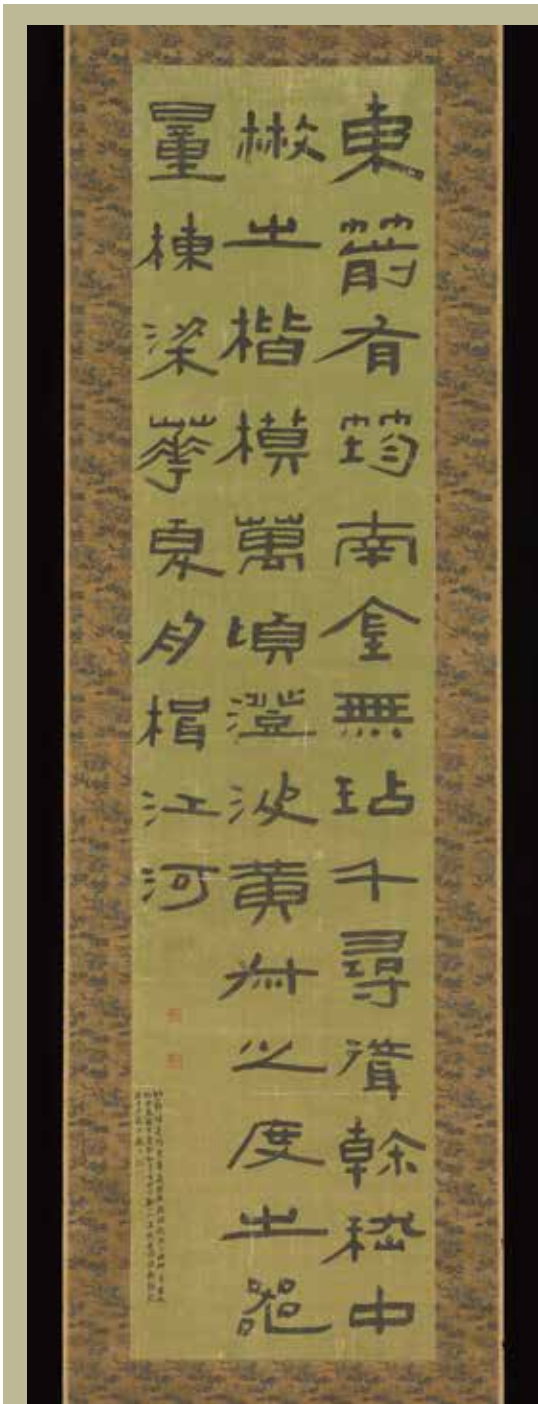 東箭有筠南金無玷千尋聳幹嵇中
散之楷模萬頃澄波黃叔之度之器
量棟梁華夏舟楫江河